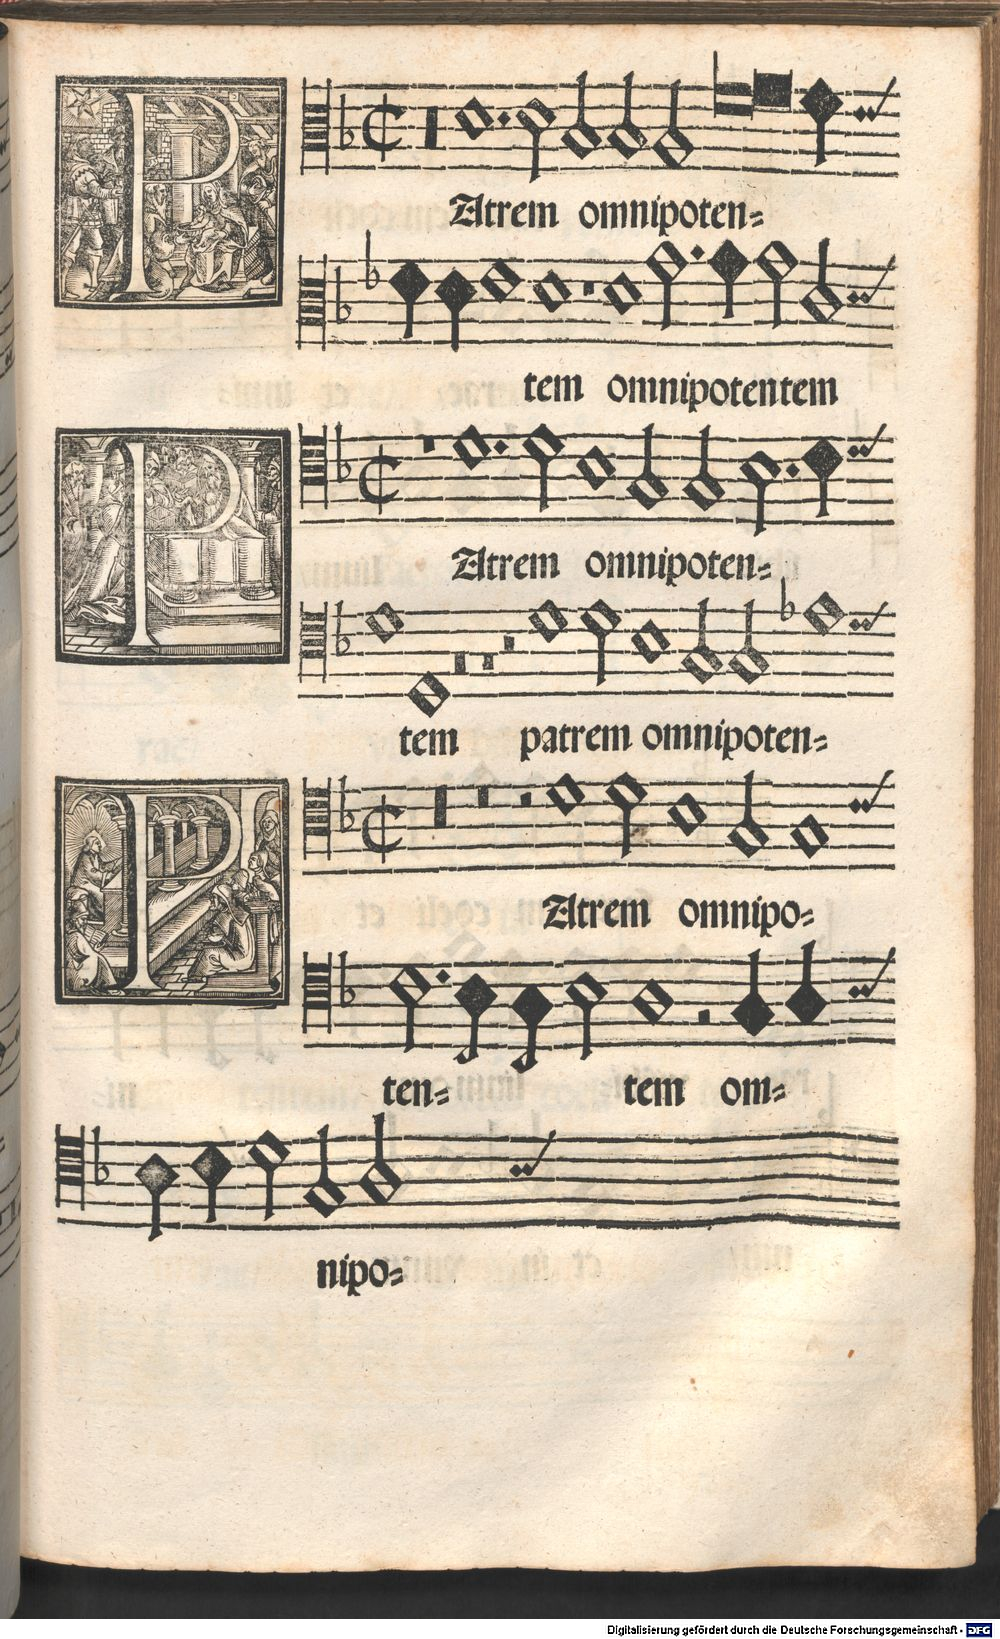 PAtrem omnipoten=
tem omnipotentem
PAtrem omnipoten=
tem patrem omnipoten=
PAtrem omnipo=
ten= tem om=
nipo=
Digitalisierung gefördert durch die Deutsche Forschungsgemeinschaft - DFG